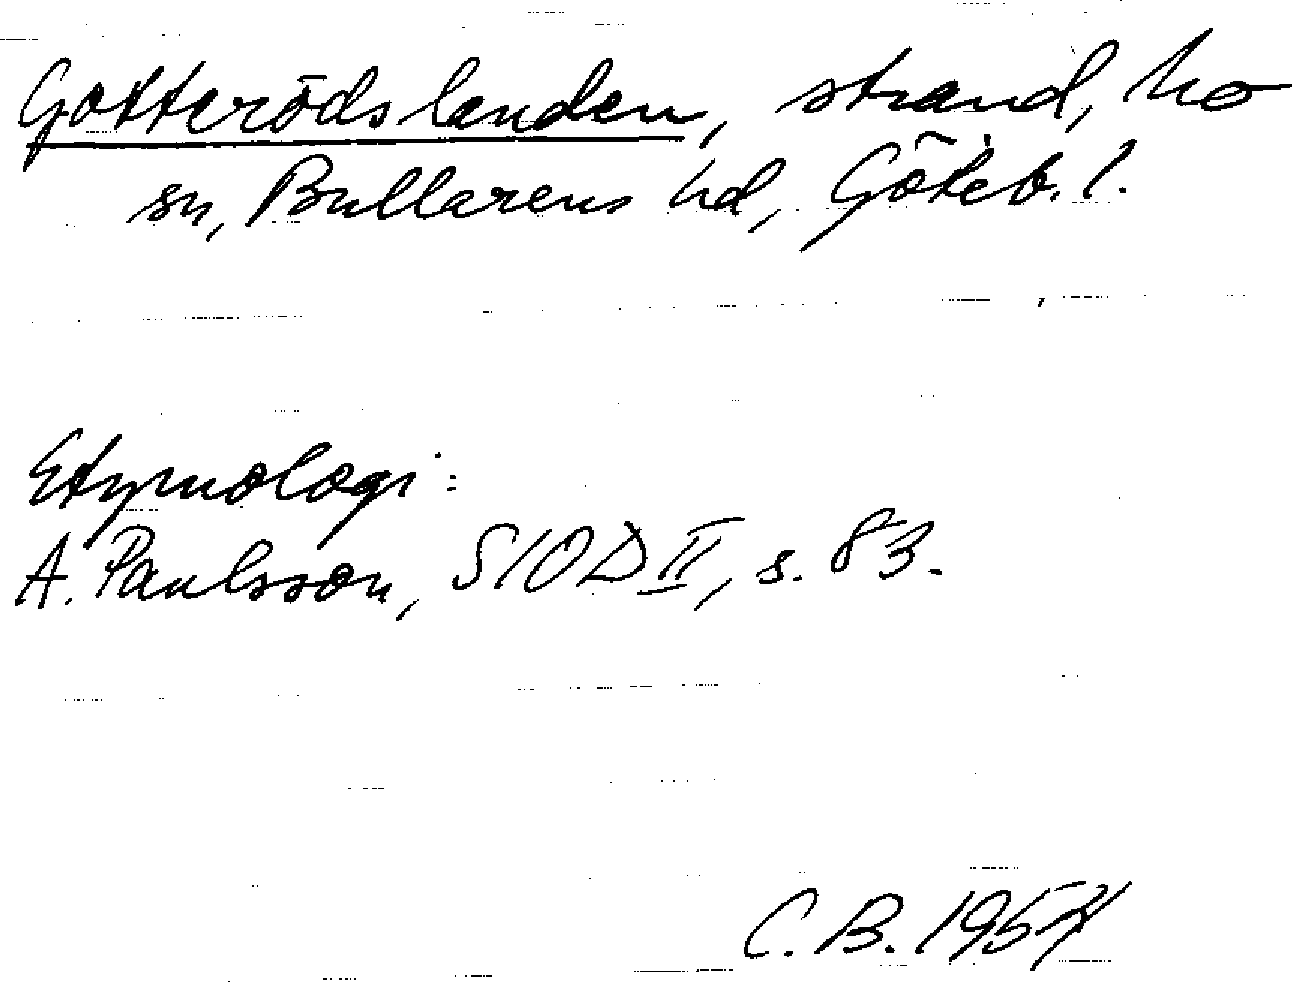 Gotterödslanden, strand, Mo
sn, Bullarens hd, Göteb. l.
Etymologi:
A. Paulsson, SIOD II, s. 83.
C. B. 1957